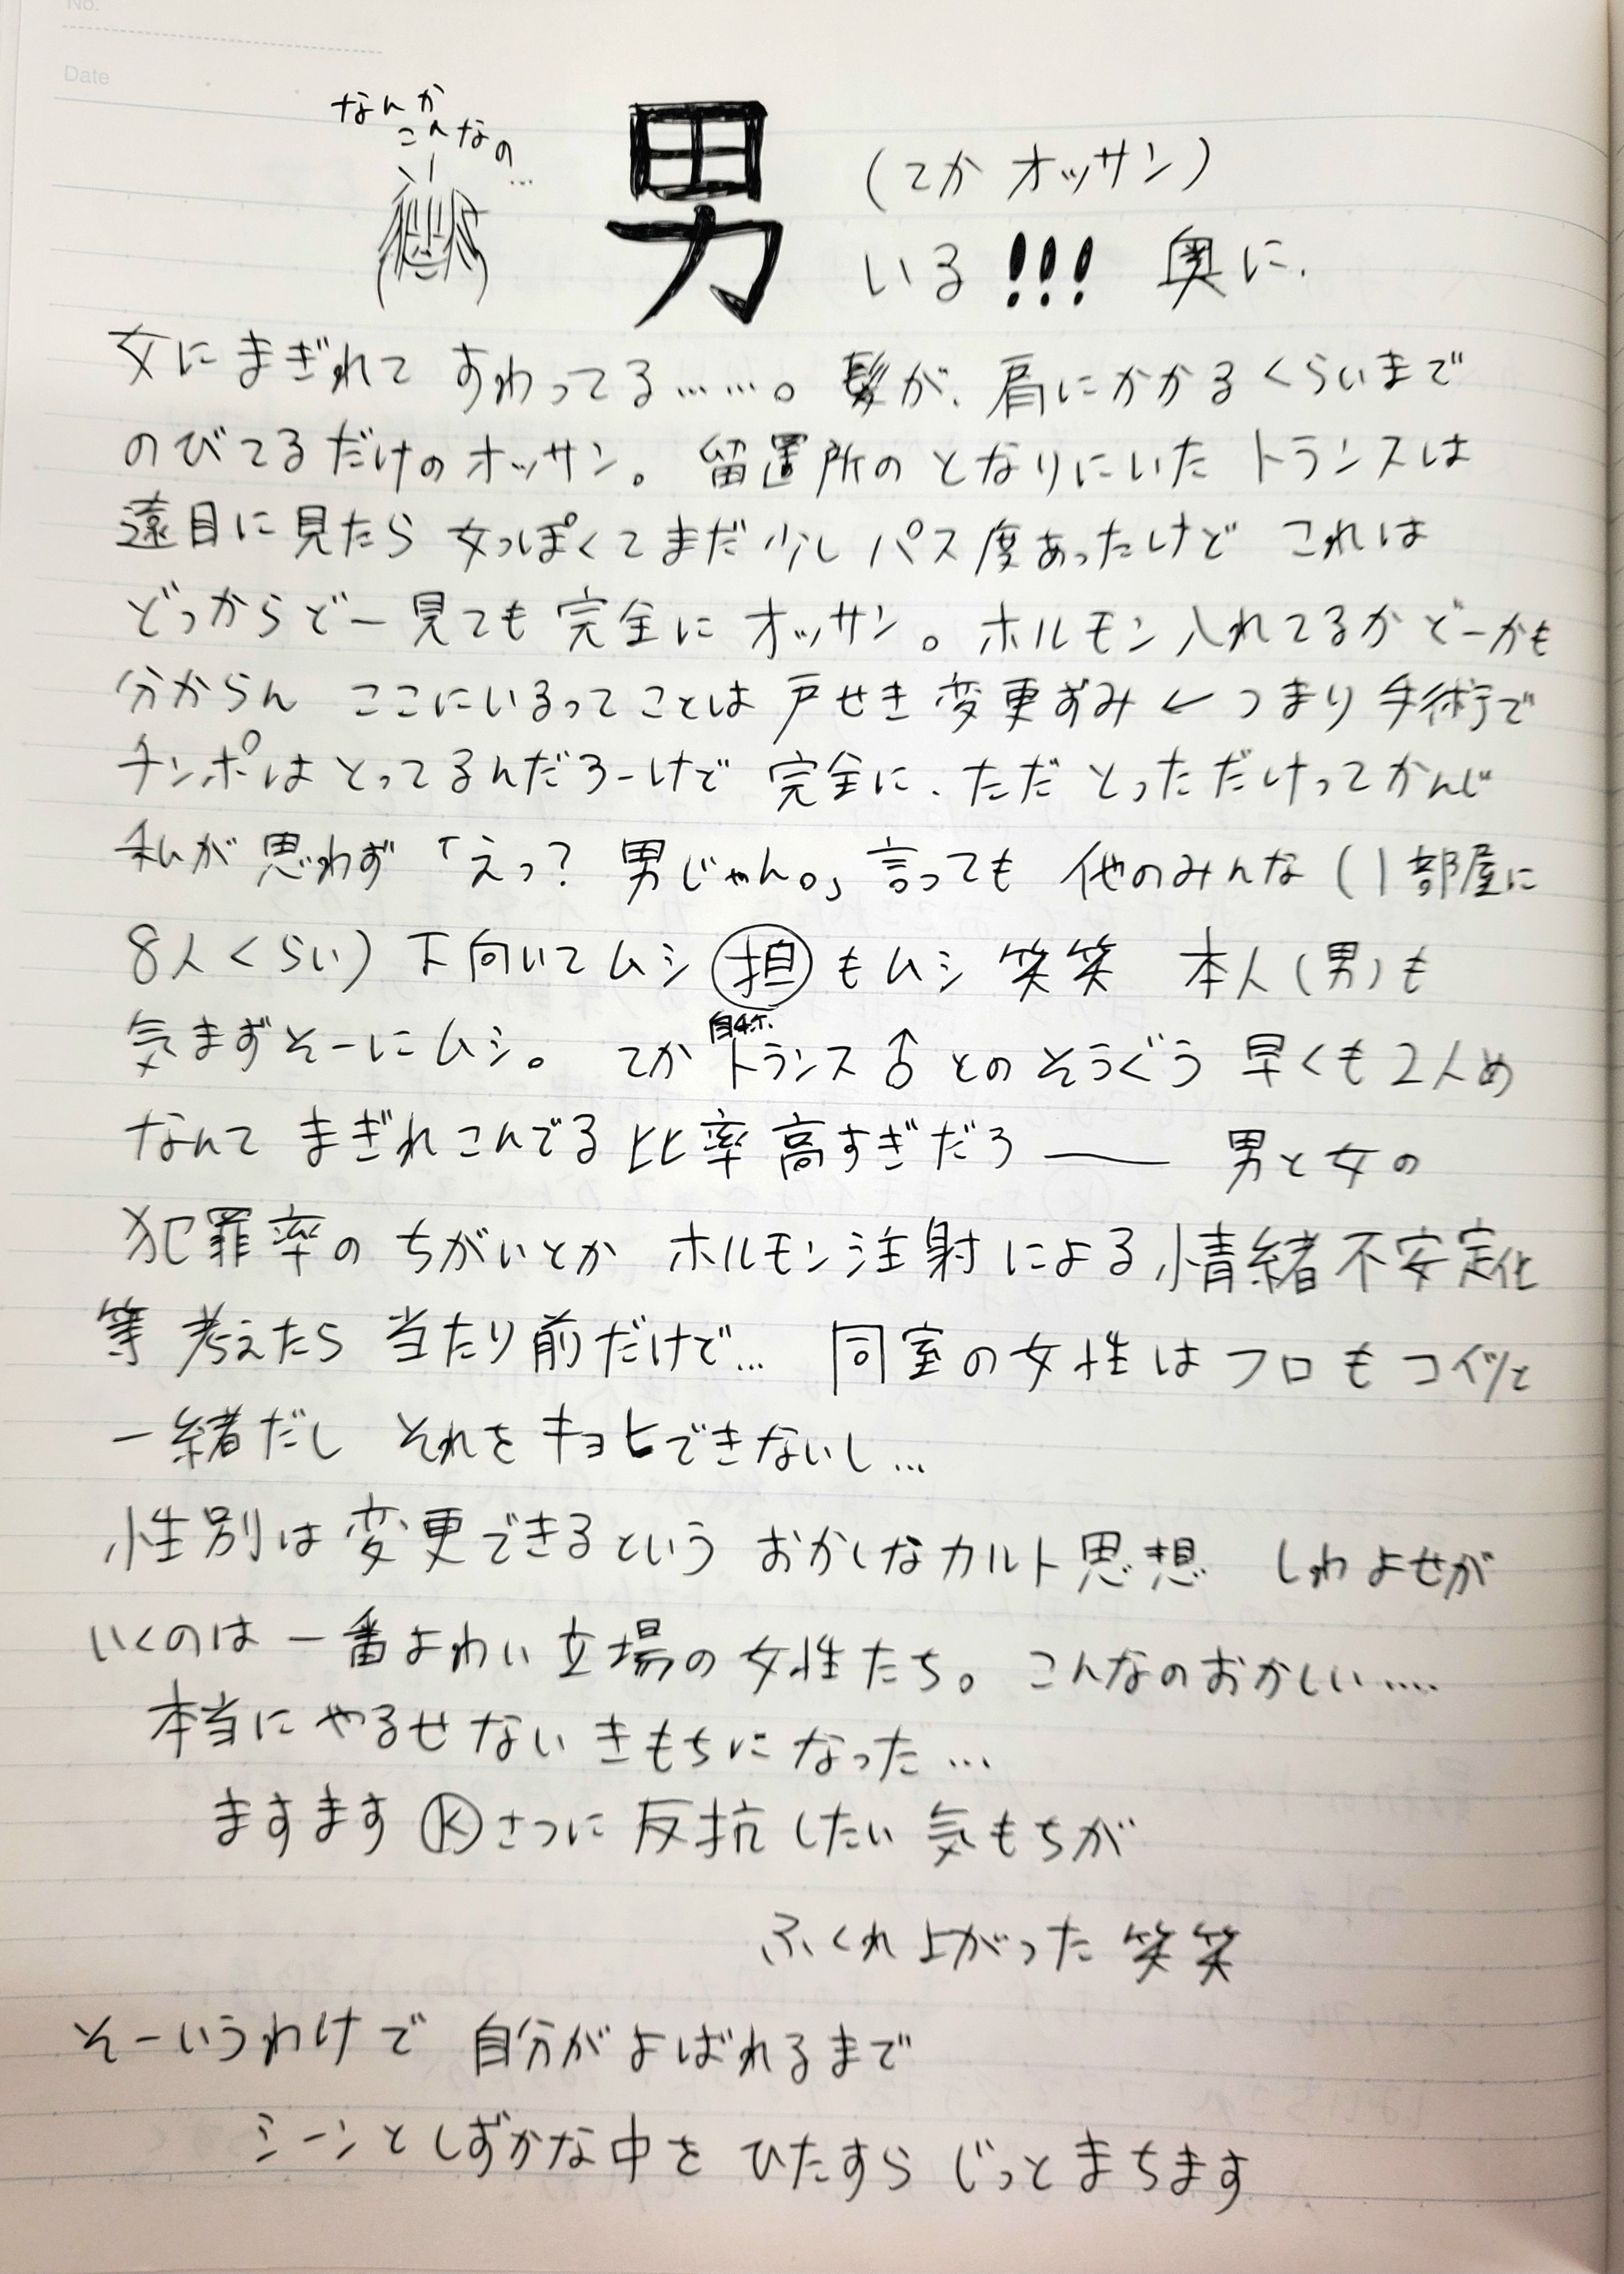 No.
Date
なんか
こんなの…
男 (てか オッサン)
いる!!! 奥に、
女にまぎれて すわってる……。髪が、肩にかかるくらいまで
のびてるだけのオッサン。留置所のとなりにいたトランスは
遠目に見たら 女っぽくてまだ少しパス度あったけど これは
どっからどー見ても完全にオッサン。ホルモン入れてるかどーかも
分からん ここにいるってことは戸せき変更ずみ←つまり手術で
チンポはとってるんだろーけど 完全に、ただ とっただけってかんじ
私が思わず「えっ?男じゃん。」言っても 他のみんな(1部屋に
8人くらい)下向いてムシ 担もムシ 笑笑 本人(男)も
気まずそーにムシ。 てか 自称トランス♂とのそうぐう 早くも2人め
なんて まぎれこんでる比率高すぎだろ—— 男と女の
犯罪率のちがいとか ホルモン注射による情緒不安定化
等 考えたら 当たり前だけど… 同室の女性はフロもコイツと
一緒だし それをキョヒできないし…
性別は変更できるという おかしなカルト思想 しわよせが
いくのは 一番よわい立場の女性たち。こんなのおかしい….
本当に やるせない きもちになった…
ますます Kさつに反抗したい気もちが
ふくれ上がった 笑笑
そーいうわけで 自分がよばれるまで
シーンとしずかな中を ひたすら じっとまちます